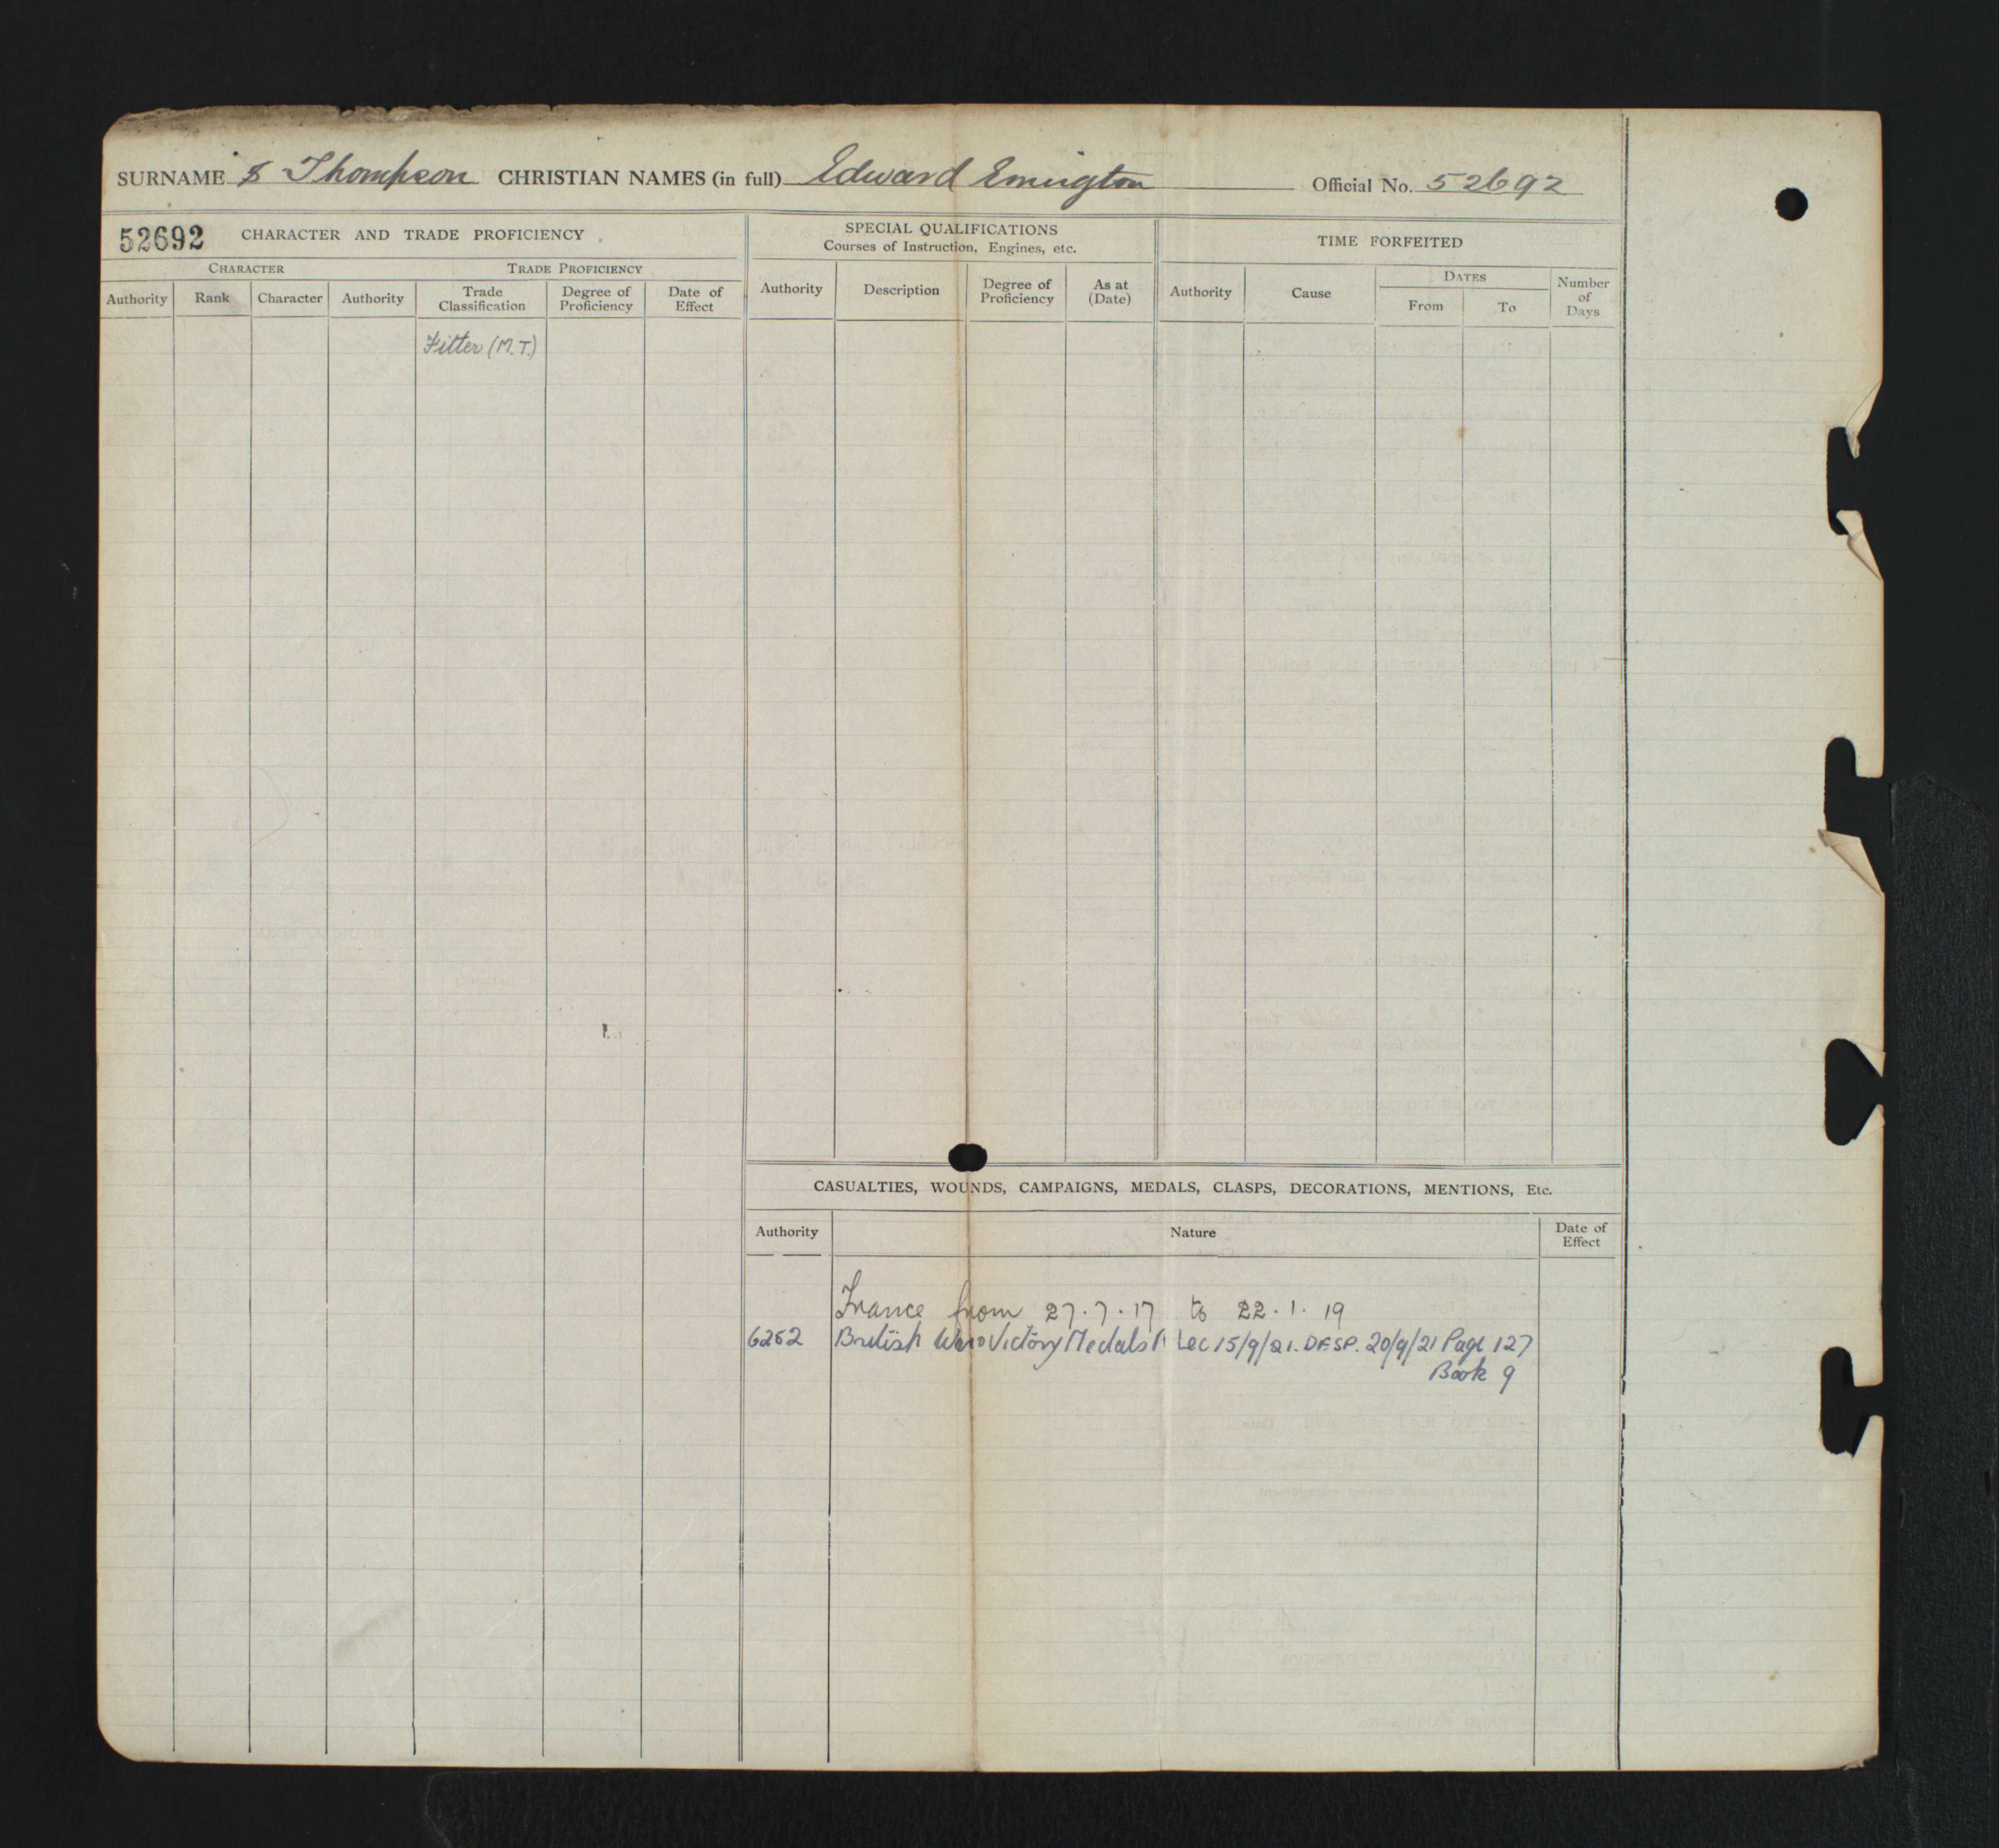 SURNAME Thompson CHRISTIAN NAMES (in full) Edward Emington Official No. 52692
52692 CHARACTER AND TRADE PROFICIENCY
CHARACTER TRADE PROFICIENCY
Authority Rank Character Authority Trade Classification Degree of Proficiency Date of Effect
Fitter (M.T.)
SPECIAL QUALIFICATIONS
Courses of Instruction, Engines, etc.
Authority Description Degree of Proficiency As at (Date)
TIME FORFEITED
Authority Cause DATES From To Number of Days
CASUALTIES, WOUNDS, CAMPAIGNS, MEDALS, CLASPS, DECORATIONS, MENTIONS, Etc.
Authority Nature Date of Effect
France from 27.7.17 to 22.1.19
6262 British War Victory Medals Lec 15/9/21. DESP. 20/9/21 Page 127
Book 9